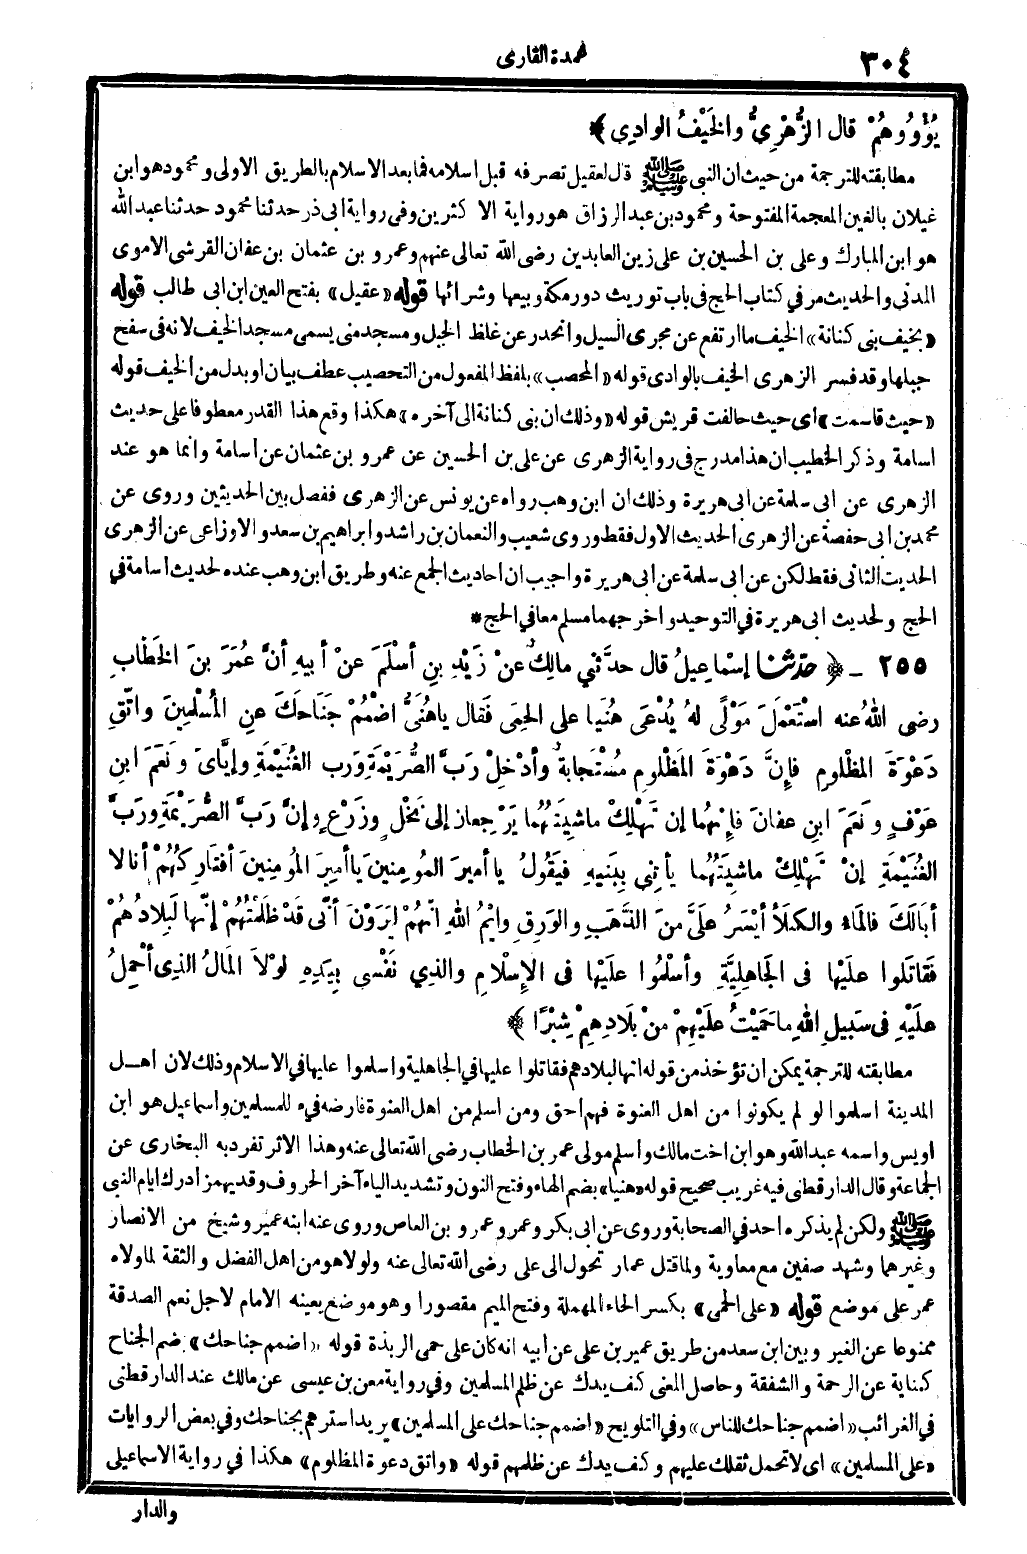 ٣٠٤
عمدة القارى
يُؤْوُوهُمْ قال الزُّهْرِيُّ والخَيْفُ الوادِي ﴾
مطابقته للترجمة من حيث ان النبي ﷺ قال لعقيل تصرفه قبل اسلامه فما بعد الاسلام بالطريق الاولى ومحمود هو ابن
غيلان بالغين المعجمة المفتوحة ومحمود بن عبد الرزاق هو رواية الا كثرين وفى رواية ابى ذر حدثنا محمود حدثنا عبد الله
هو ابن المبارك وعلى بن الحسين بن على زين العابدين رضى الله تعالى عنهم وعمرو بن عثمان بن عفان القرشى الاموى
المدنى والحديث مر في كتاب الحج فى باب توريث دور مكة وبيعها وشرائها قوله «عقيل» بفتح العين ابن ابى طالب قوله
«بخيف بنى كنانة» الخيف ما ارتفع عن مجرى السيل وانحدر عن غلظ الجبل ومسجد منى يسمى مسجد الخيف لانه فى سفح
جبلها وقد فسر الزهرى الخيف بالوادى قوله «المحصب» بلفظ المفعول من التحصيب عطف بيان او بدل من الخيف قوله
«حيث قاسمت» اى حيث حالفت قريش قوله «وذلك ان بنى كنانة الى آخره» هكذا وقع هذا القدر معطوفا على حديث
اسامة وذكر الخطيب ان هذا مدرج فى رواية الزهرى عن على بن الحسين عن عمرو بن عثمان عن أسامة وانما هو عند
الزهرى عن ابى سلمة عن ابى هريرة وذلك ان ابن وهب رواه عن يونس عن الزهرى ففصل بين الحديثين وروى عن
محمد بن ابى حفصة عن الزهرى الحديث الاول فقط وروى شعيب والنعمان بن راشد وابراهيم بن سعد والاوزاعى عن الزهرى
الحديث الثانى فقط لكن عن ابى سلمة عن ابى هريرة واجيب ان احاديث الجمع عنه وطريق ابن وهب عنده لحديث اسامة في
الحج ولحديث ابى هريرة في التوحيد واخرجهما مسلم معا في الحج *
٢٥٥ - ﴿ حدّثنا إسْماعِيلُ قال حدَّثني مالِكٌ عنْ زَيْدِ بنِ أسْلَمَ عنْ أبيهِ أنَّ عُمَرَ بنَ الخَطَّابِ
رضى اللهُ عنه اسْتَعْمَلَ مَوْلًى لهُ يُدْعَى هُنَيا على الحِمَى فَقال ياهُنَىُّ اضْمُمْ جَناحَكَ عنِ المُسْلِمِينَ واتَّقِ
دَعْوَةَ المَظْلومِ فإِنَّ دَعْوَةَ المَظْلومِ مُسْتَجابةٌ وأدْخِلْ رَبَّ الصُّرَيْمَةِ ورَبَّ الغُنَيْمَةِ وإيَّاىَ ونَعَمَ ابنِ
عَوْفٍ ونَعَمَ ابنِ عفانَ فإنَّهُما إن تَهْلِكْ ماشِيَتُهُما يَرْجِعانِ إلى نَخْلٍ وزَرْعٍ وإنَّ رَبَّ الصُّرَيْمَةِ ورَبَّ
الغُنَيْمَةِ إنْ تَهْلِكْ ماشِيَتُهُما يأتِني بِبَنيهِ فيَقُولُ ياأميرَ المُومِنينَ ياأمِيرَ المُومِنينَ أفتارِكُهُمْ أنا لا
أبالَكَ فالماءُ والكَلَأُ أيْسَرُ علَىَّ منَ الذَّهَبِ والوَرِقِ وايْمُ اللهِ انَّهُمْ لَيَرَوْنَ أنِّى قَدْ ظَلَمْتُهُمْ إنَّها لَبِلادُهُمْ
فَقاتَلُوا علَيْها فى الجَاهِلِيَّةِ وأسْلَمُوا علَيْها فى الإِسْلامِ والذي نَفْسى بِيَدِهِ لوْلاَ المَالُ الذِى أحْمِلُ
علَيْهِ فى سَبِيلِ اللهِ ماحَمَيْتُ علَيْهِمْ منْ بِلادِهِمْ شِبْرًا ﴾
مطابقته للترجمة يمكن ان تؤخذ من قوله انها لبلادهم فقاتلوا عليها في الجاهلية واسلموا عليها في الاسلام وذلك لان اهل
المدينة اسلموا لو لم يكونوا من اهل العنوة فهم احق ومن اسلم من اهل العنوة فارضه فيء للمسلمين واسماعيل هو ابن
اويس واسمه عبد الله وهو ابن اخت مالك واسلم مولى عمر بن الخطاب رضى الله تعالى عنه وهذا الاثر تفرد به البخارى عن
الجماعة وقال الدار قطنى فيه غريب صحيح قوله «هنيا» بضم الهاء وفتح النون وتشديد الياء آخر الحروف وقد يهمز أدرك ايام النبى
ﷺ ولكن لم يذكره احد في الصحابة وروى عن ابى بكر وعمر وعمرو بن العاص وروى عنه ابنه عمير وشيخ من الانصار
وغيرهما وشهد صفين مع معاوية ولما قتل عمار تحول الى على رضى الله تعالى عنه ولولا هو من اهل الفضل والثقة لما ولاه
عمر على موضع قوله «على الحمى» بكسر الحاء المهملة وفتح الميم مقصورا وهو موضع يعينه الامام لاجل نعم الصدقة
ممنوعا عن الغير وبين ابن سعد من طريق عمير بن على عن أبيه انه كان على حمى الربذة قوله «اضمم جناحك» ضم الجناح
كناية عن الرحمة والشفقة وحاصل المعنى كف يدك عن ظلم المسلمين وفي رواية معن بن عيسى عن مالك عند الدار قطنى
في الغرائب «اضمم جناحك للناس» وفي التلويح «اضمم جناحك على المسلمين» يريد استرهم بجناحك وفي بعض الروايات
«على المسلمين» اى لا تحمل ثقلك عليهم وكف يدك عن ظلمهم قوله «واتق دعوة المظلوم» هكذا في رواية الاسماعيلى
والدار